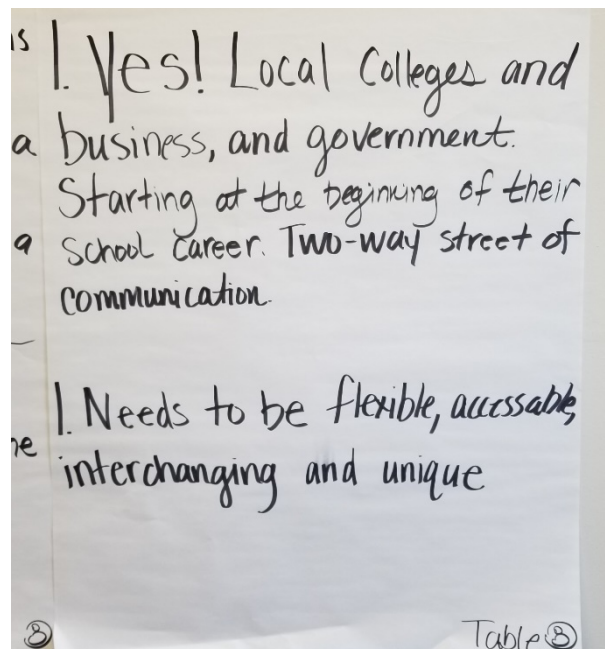 is
1. Yes! Local Colleges and
a business, and government.
Starting at the beginning of their
a school career. Two-way street of
communication.
1. Needs to be flexible, accessable,
interchanging and unique
3 Table 3